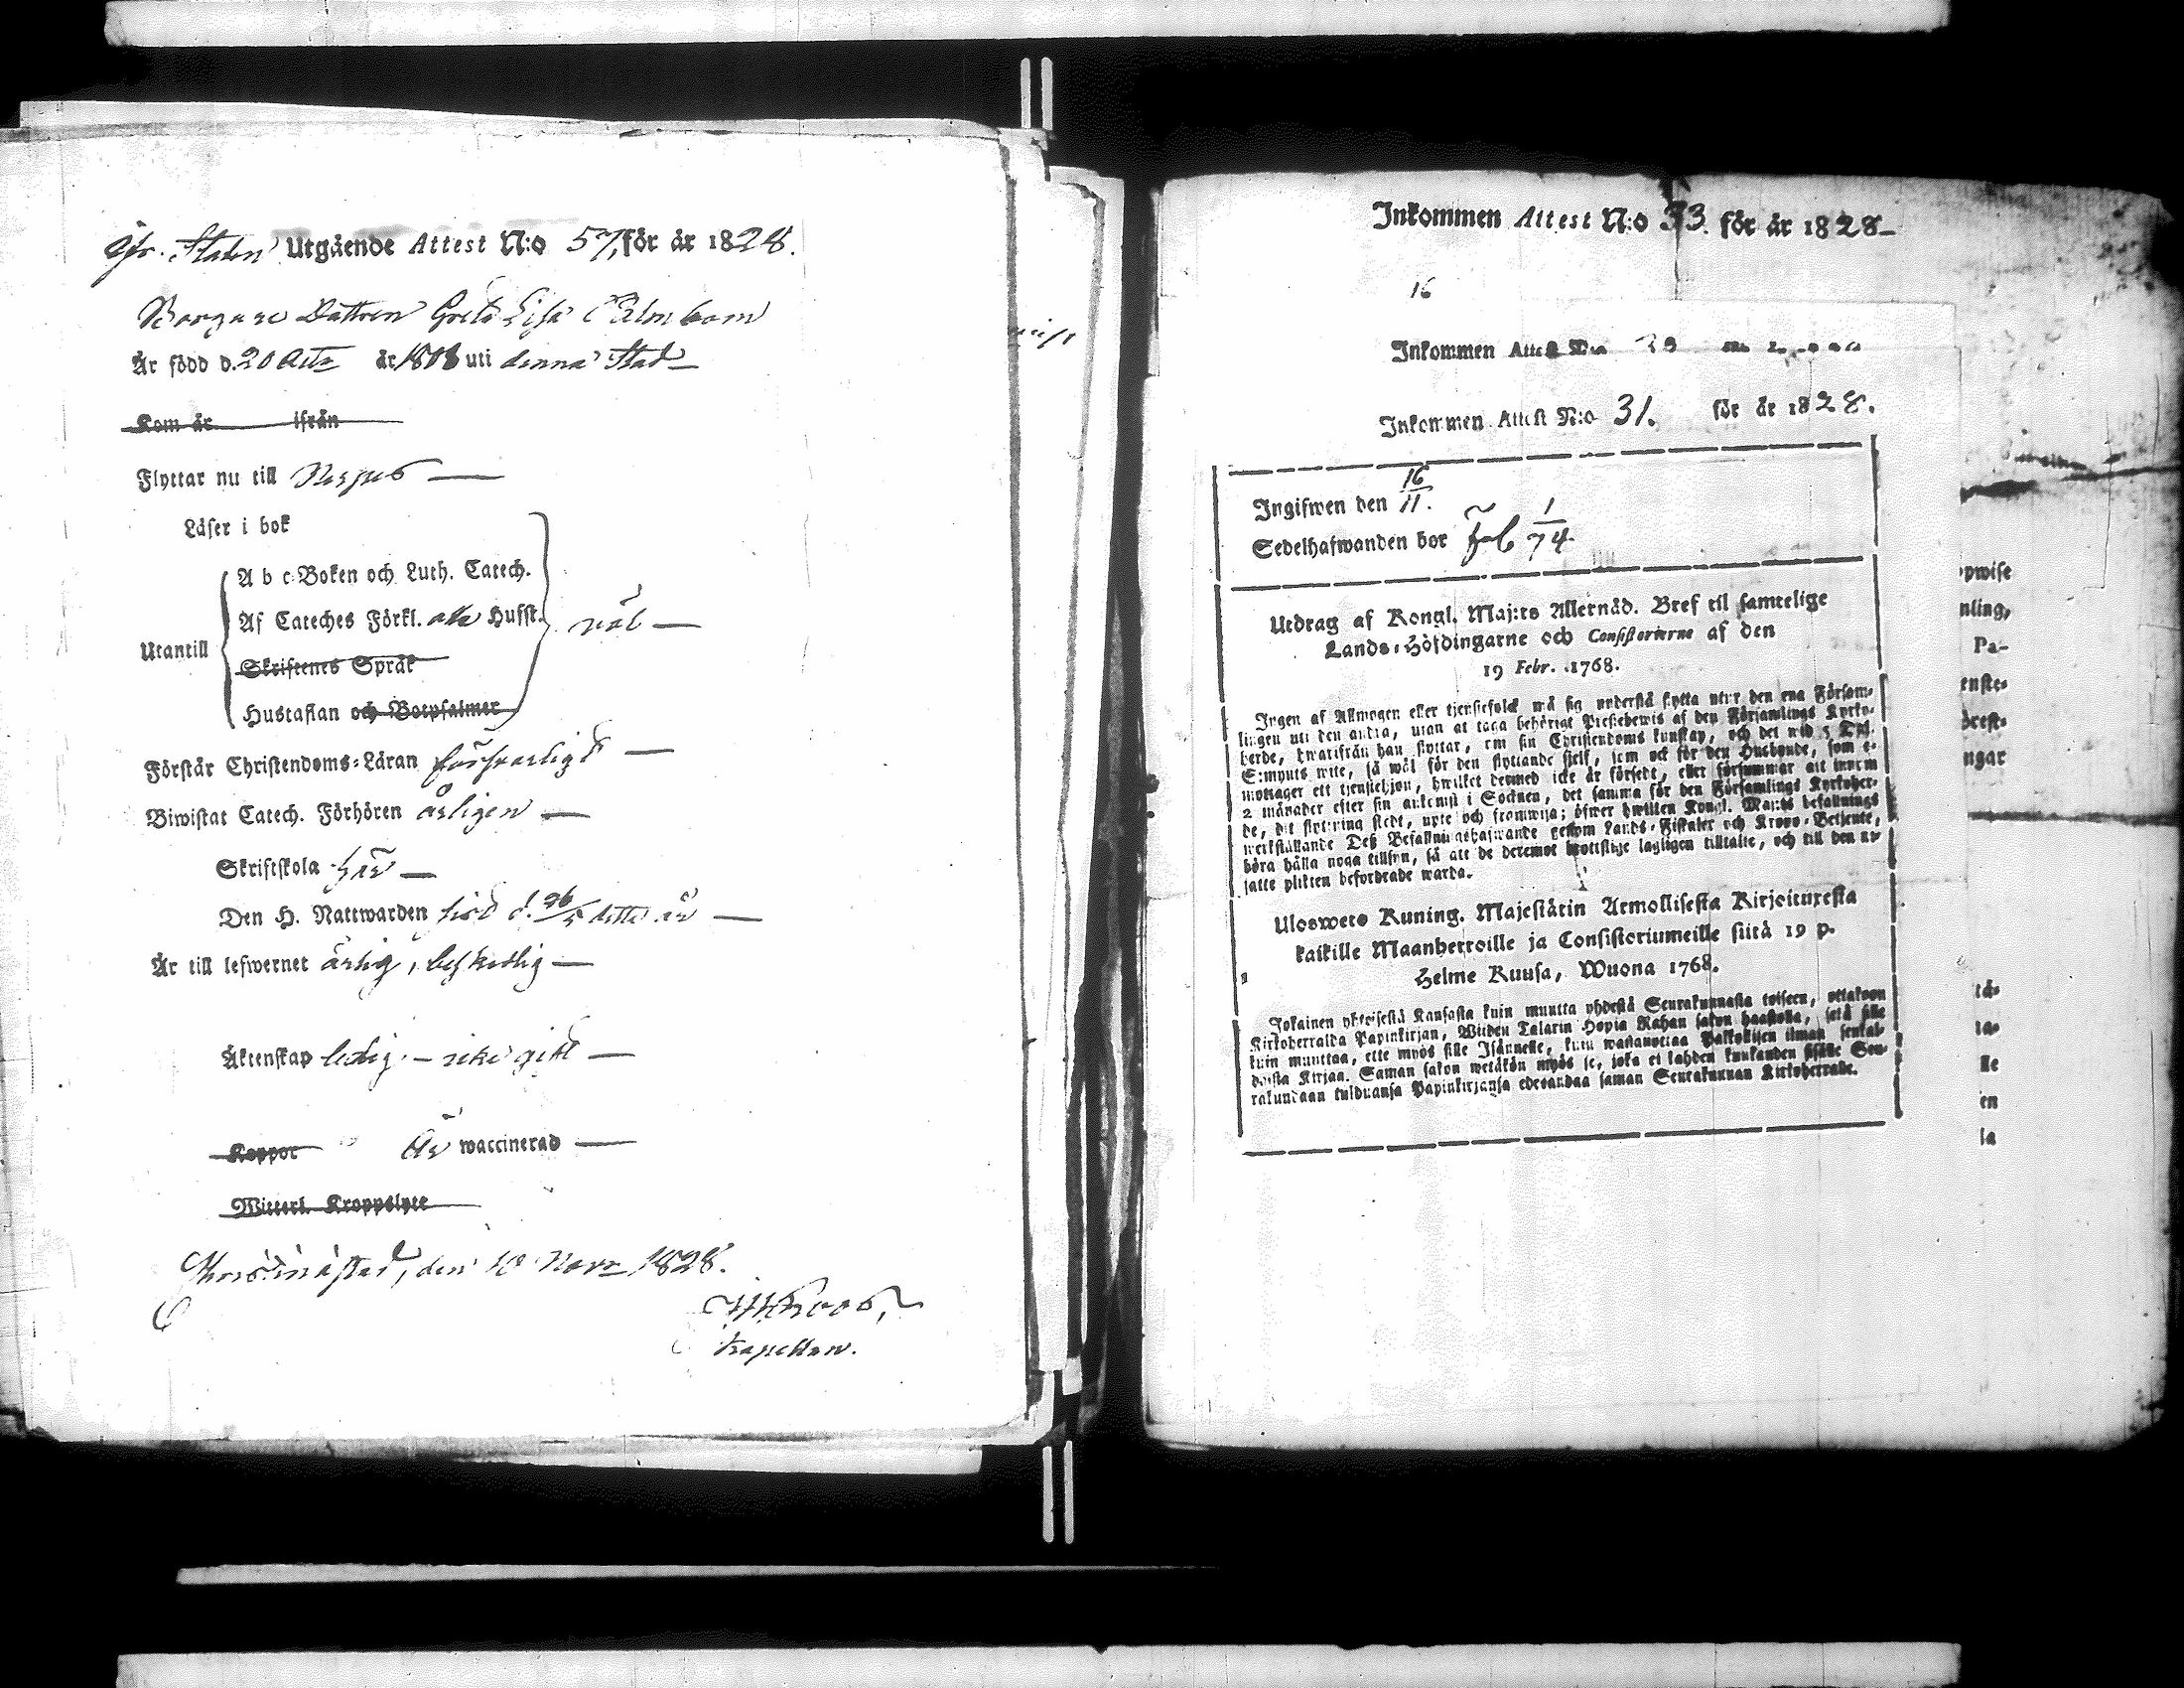 Staden Utgående Attest N:o 57, för år 1828.
Borgare Dottren Greta Lisa
Är född d. 20 år 1808 uti denna Stad
Kom år ifrån
Flyttar nu till
Läser i bok
A b c-Boken och Luth. Catech.
Af Cateches Förkl. Husst.
Utantill väl
Skriftenes Språk
Hustaflan och Botpsalmer
Förstår Christendoms-Läran försvarligt
Biwistat Catech. Förhören årligen
Skriftskola här
Den H. Nattwarden d. 26/5 detta år
Är till lefwernet ärlig, beskedlig
Äktenskap ledig, icke gift
Koppor Är waccinerad
Witterl. Kroppslyte
Christinæstad, den 10 Novr 1828.
Kapellan.
Inkommen Attest N:o 33. för år 1828
16
Inkommen Attest
Inkommen Attest N:o 31. för år 1828.
Ingifwen den 16/11.
Sedelhafwanden bor 1/74
Utdrag af Kongl. Maj:ts Allernåd. Bref til samtelige
Lands-Höfdingarne och Consistorierne af den
19 Febr. 1768.
Ingen af Allmogen eller tjenstefolck må sig understå flytta utur den ena Försam-
lingen uti den andra, utan at taga behörigt Prestebewis af den Församlings Kyrko-
herde, hwarifrån han flyttar, om sin Christendoms kunskap, och det wid 5 Tal.
S:mynts wite, så wäl för den flyttande sielf, som ock för den Husbonde, som e-
mottager ett tjenstehjon, hwilket dermed icke är försedt, eller försummar att innom
2 månader efter sin ankomst i Socknen, det samma för den Församlings Kyrkoher-
de, dit flyttning skedt, upte och framwisa; öfwer hwilken Kongl. Maj:ts befallnings
werkställande Deß Befallningshafwande genom Lands-Fiskaler och Krono-Betjente,
böra hålla noga tillsyn, så att de deremot brottslige lagligen tilltalte, och till den ut-
satte plikten befordrade warda.
Uloswetо Kuning. Majestätin Armollisesta Kirjoituxesta
kaikille Maanherroille ja Consistoriumeille siitä 19 p.
Helme Kuusa, Wuona 1768.
Jokainen yhteisestä Kansasta kuin muutta yhdestä Seurakunnasta toiseen, ottakoon
Kirkoherralda Papinkirjan, Wiiden Talarin Hopia Rahan sakon haastolla, sekä sille
kuin muuttaa, ette myös sille Isännelle, kuin wastanottaa Palkollisen ilman senkal-
daista Kirjaa. Saman sakon wetäkön myös se, joka ei kahden kuukauden sisälle Seu-
rakundaan tulduansa Papinkirjansa edesandaa saman Seurakunnan Kirkoherralle.